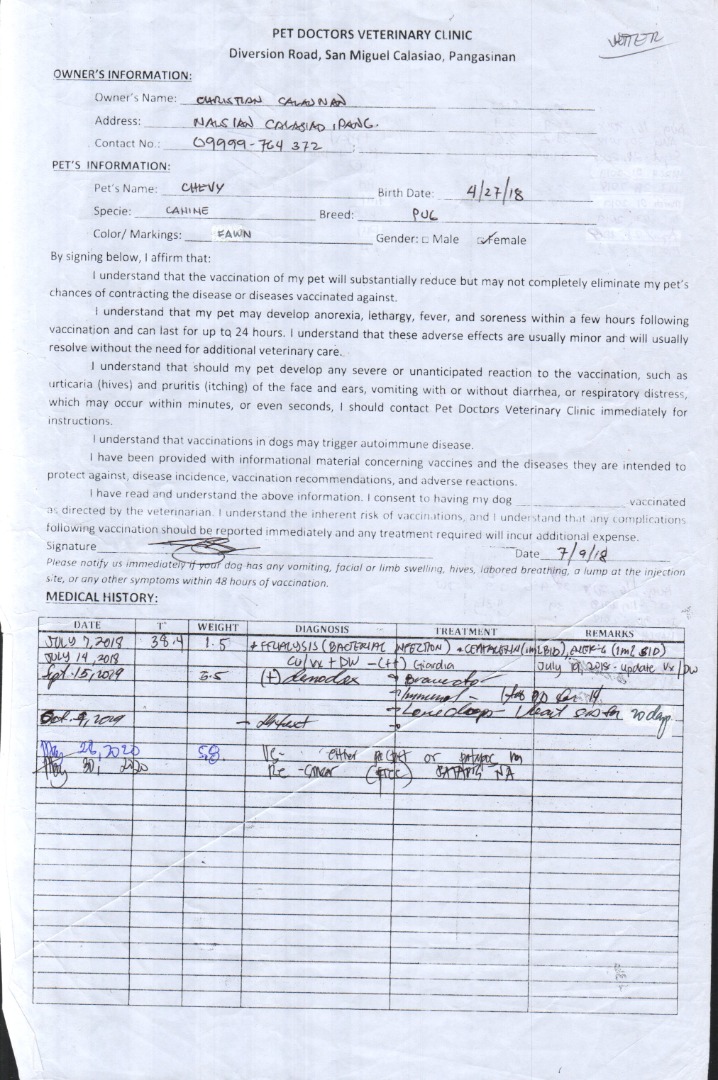 PET DOCTORS VETERINARY CLINIC
Diversion Road, San Miguel Calasiao, Pangasinan
OWNER'S INFORMATION:
Owner's Name: CHRISTIAN CALAUNAN
Address: NALSIAN CALASIAO, PANG.
Contact No.: 09999-764 372
PET'S INFORMATION:
Pet's Name: CHEVY Birth Date: 4/27/18
Specie: CANINE Breed: PUG
Color/ Markings: FAWN Gender: □ Male ☑ Female
By signing below, I affirm that:
I understand that the vaccination of my pet will substantially reduce but may not completely eliminate my pet's
chances of contracting the disease or diseases vaccinated against.
I understand that my pet may develop anorexia, lethargy, fever, and soreness within a few hours following
vaccination and can last for up to 24 hours. I understand that these adverse effects are usually minor and will usually
resolve without the need for additional veterinary care.
I understand that should my pet develop any severe or unanticipated reaction to the vaccination, such as
urticaria (hives) and pruritis (itching) of the face and ears, vomiting with or without diarrhea, or respiratory distress,
which may occur within minutes, or even seconds, I should contact Pet Doctors Veterinary Clinic immediately for
instructions.
I understand that vaccinations in dogs may trigger autoimmune disease.
I have been provided with informational material concerning vaccines and the diseases they are intended to
protect against, disease incidence, vaccination recommendations, and adverse reactions.
I have read and understand the above information. I consent to having my dog vaccinated
as directed by the veterinarian. I understand the inherent risk of vaccinations, and I understand that any complications
following vaccination should be reported immediately and any treatment required will incur additional expense.
Signature Date 7/9/18
Please notify us immediately if your dog has any vomiting, facial or limb swelling, hives, labored breathing, a lump at the injection
site, or any other symptoms within 48 hours of vaccination.
MEDICAL HISTORY:
DATE T° WEIGHT DIAGNOSIS TREATMENT REMARKS
JULY 7, 2018 38.4 1.5 (BACTERIAL INFECTION) (1ml SID)
JULY 14, 2018 Vx + DW - (++) Giardia July 19, 2018 - update Vx / DW
Sept. 15, 2019 (+) demodex
for 20 days
Oct. 9, 2019
May 28, 2020 either or
May 30, 2020 NA